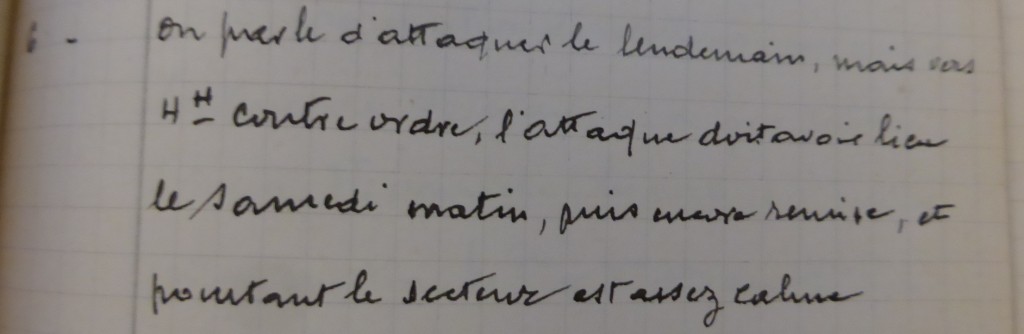 6 - on parle d'attaquer le lendemain, mais vers
4H contre ordre, l'attaque doit avoir lieu
le samedi matin, puis encore remise, et
pourtant le secteur est assez calme